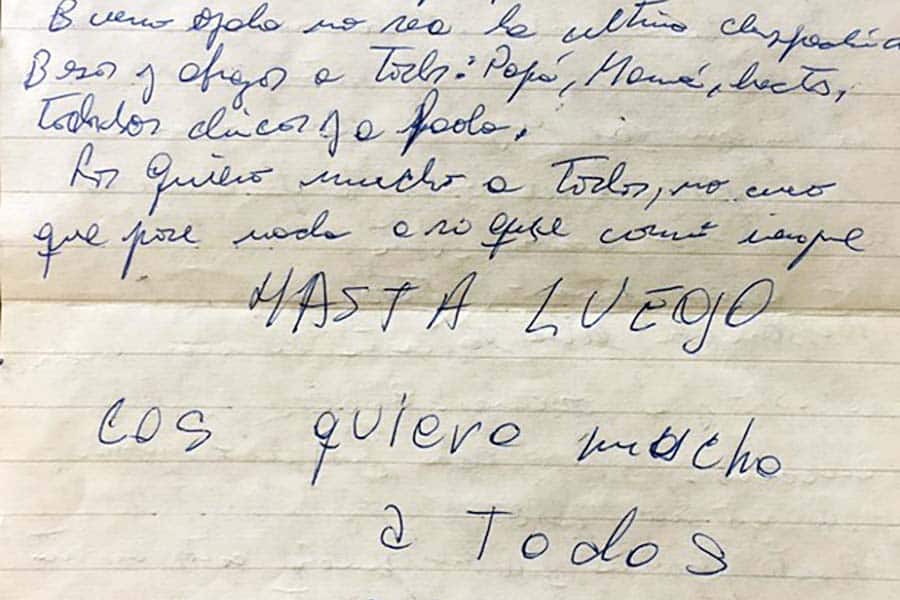 Bueno ojala no sea la ultima despedida
Besos y abrazos a Todos: Papá, Mamá,
Todos los chicos y a Paola.
Los Quiero mucho a Todos, no creo
que pase nada
HASTA LUEGO
LOS quiero mucho
a Todos